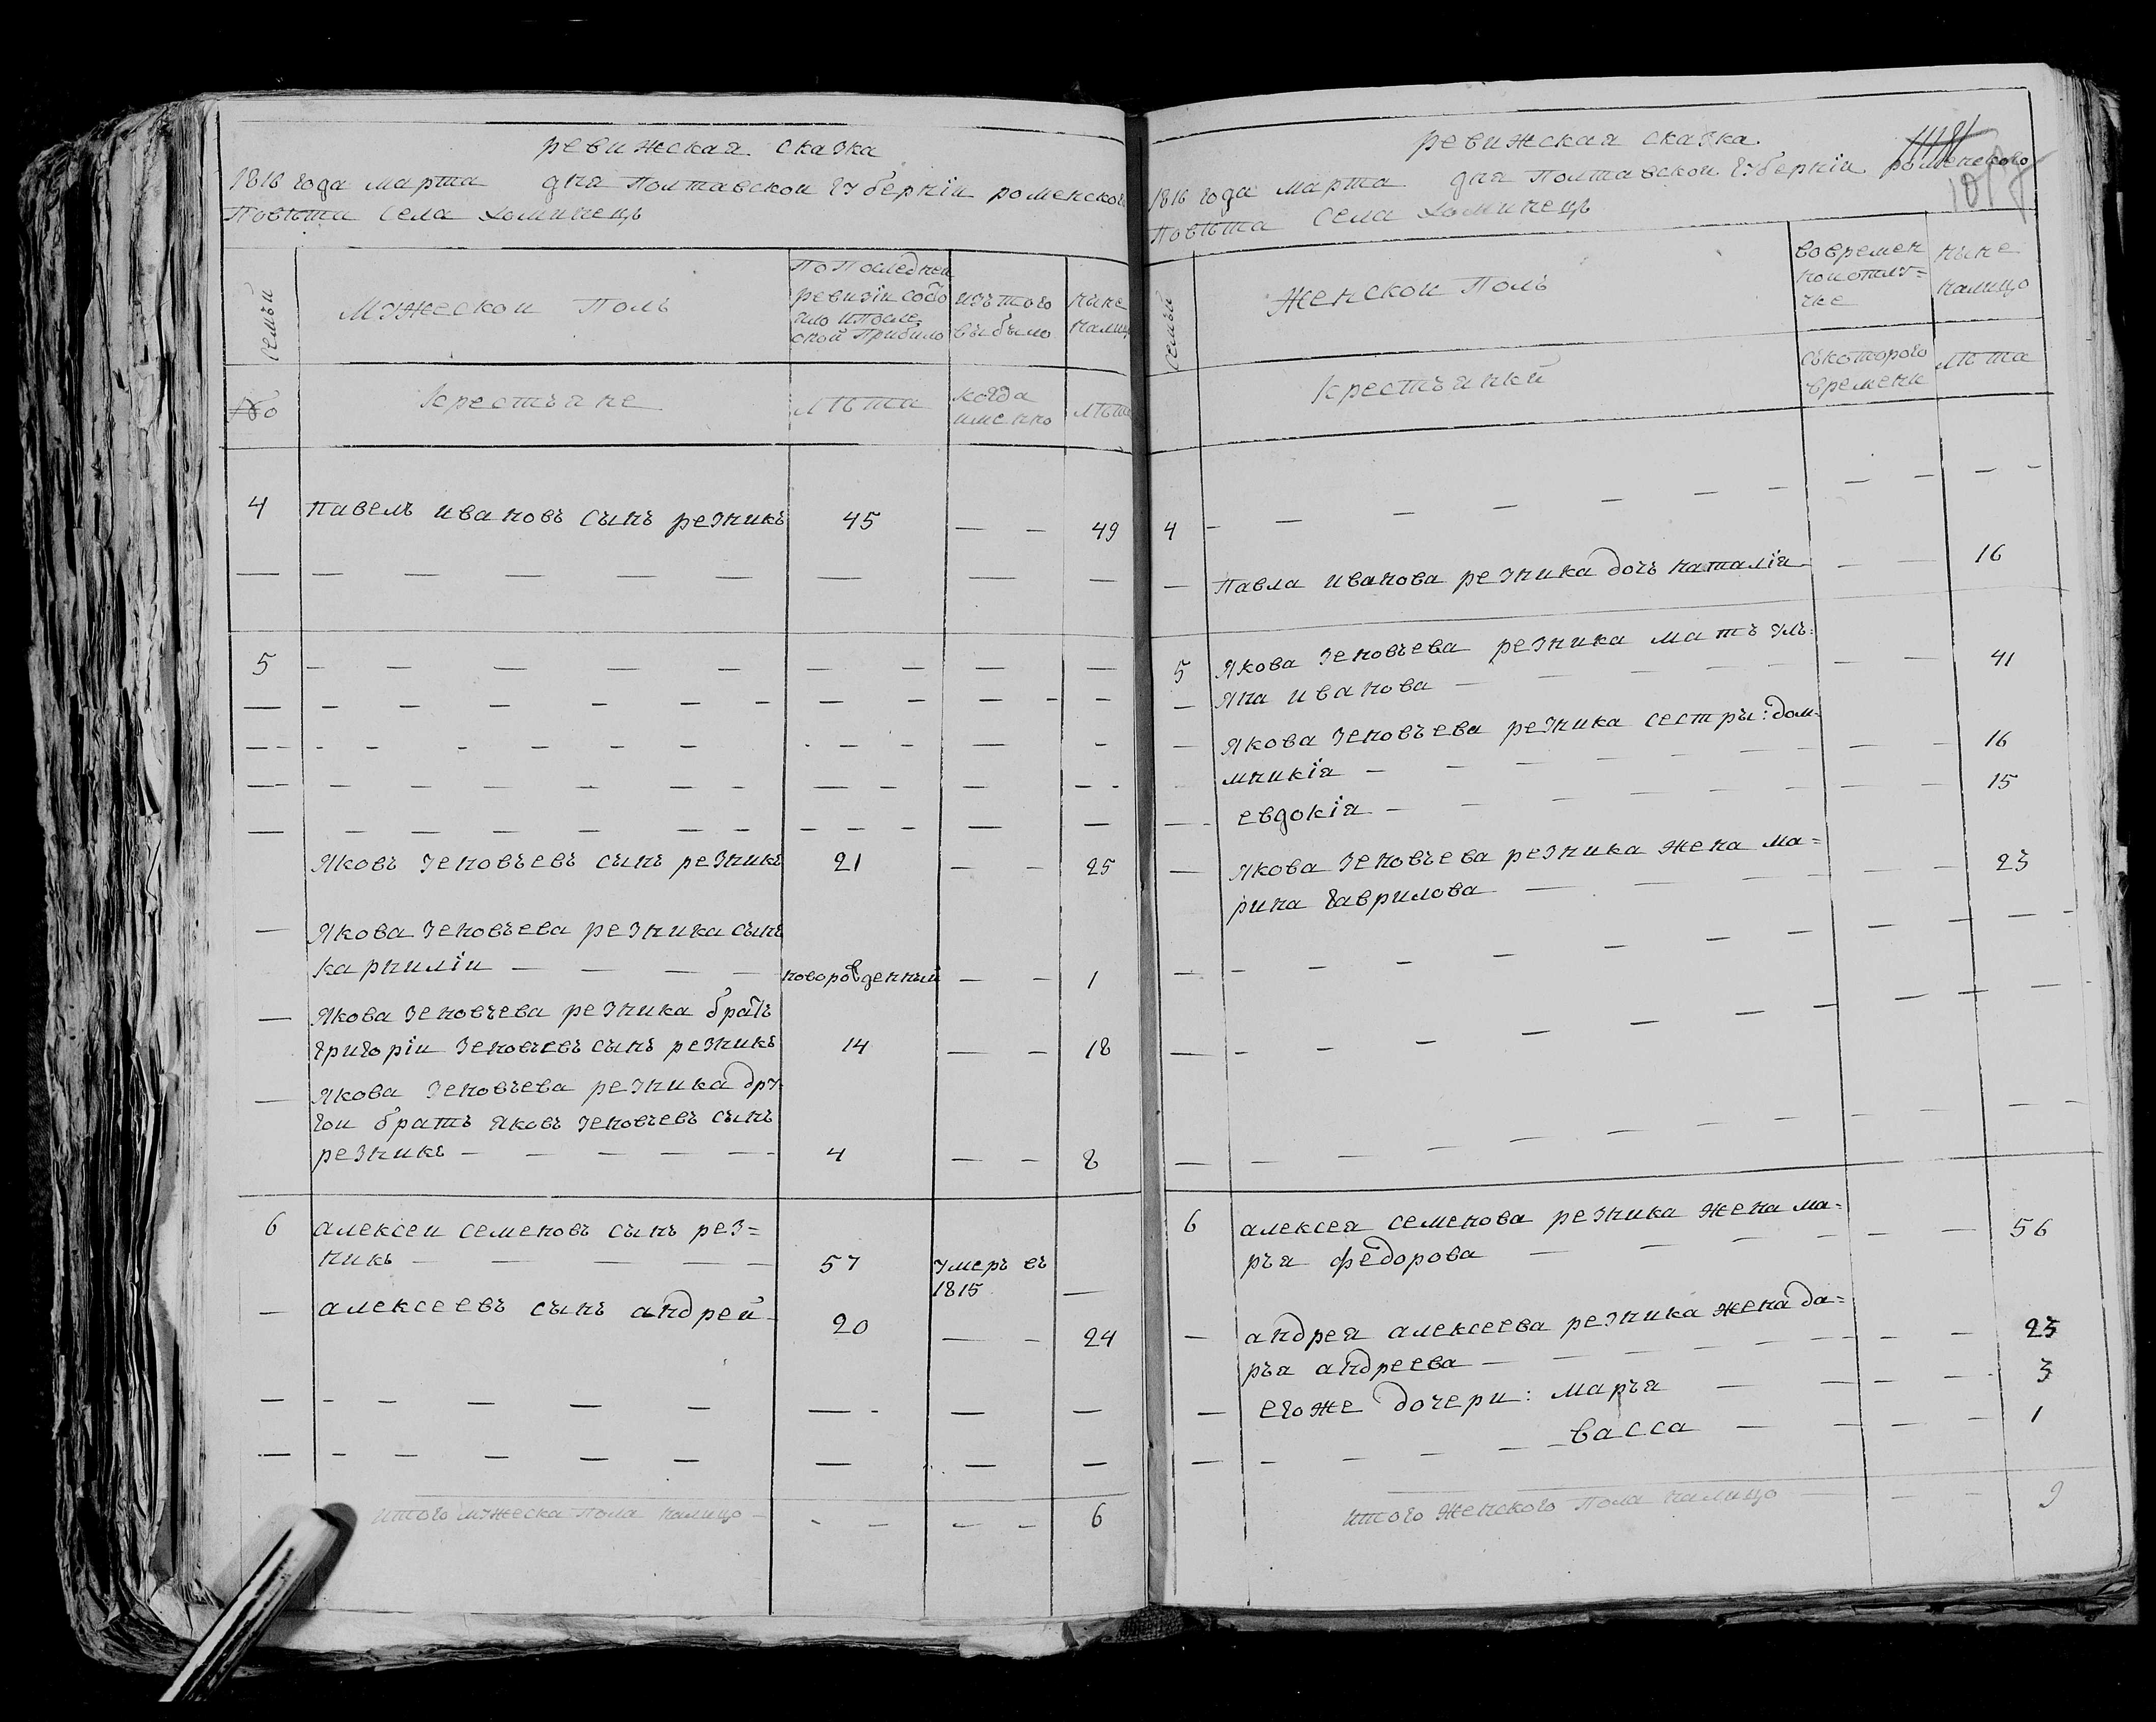 ревижская сказка
1816 года марта дня Полтавской губернїи роменского
Повѣта села хоминецъ
семьи
Мужеской Полъ
По Последней
ревизїи состо
яло и после
оной Прибыло
изъ того
выбыло
ныне
налицо
№о
Крестьяне
лѣта
когда
именно
лѣта
4 Павелъ ивановъ сынъ резникъ 45 — — 49
5
Яковъ Зеновьевъ сынъ резникъ 21 — — 25
— Якова Зеновьева резника сынъ
карнилїи — — — — новорожденный — — 1
— Якова Зеновьева резника братъ
григорїи Зеновьевъ сынъ резникъ 14 — — 18
— Якова Зеновьева резника дру-
гои братъ Яковъ Зеновьевъ сынъ
резникъ — — — — — 4 — — 8
6 алексеи семеновъ сынъ рез=
никъ — — — — — 57 умеръ въ
1815 —
— алексеевъ сынъ андрей 20 — — 24
итого мужеска пола налицо — — — — — 6
ревижская сказка
1816 года марта дня Полтавской губернїи роменского
Повѣта села хоминецъ
семьи
Женской Полъ
вовремен
ной отлу=
чке
ныне
налицо
Крестьянки
съкоторого
времени
лѣта
4
— Павла иванова резника дочь наталїя — — 16
5 Якова Зеновьева резника мать улъ=
— яна иванова — — — — — — 41
— Якова Зеновьева резника сестры: дом-
мникїя — — — — — — — 16
— евдокїя — — — — — — — 15
— Якова Зеновьева резника жена ма=
рина гаврилова — — — — — 23
6 алексея семенова резника жена ма=
рья федорова — — — — — — 56
— андрея алексеева резника жена да=
рья андреева — — — — — — 23
— егоже дочери: марья — — — — 3
— — — — — васса — — — — 1
итого женского пола налицо — — — 9